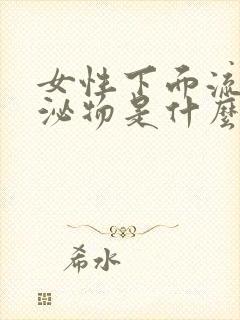 女性下面流
泌物是什麼
希水